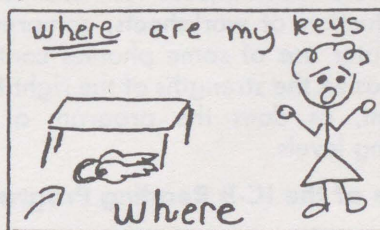 where are my keys
where